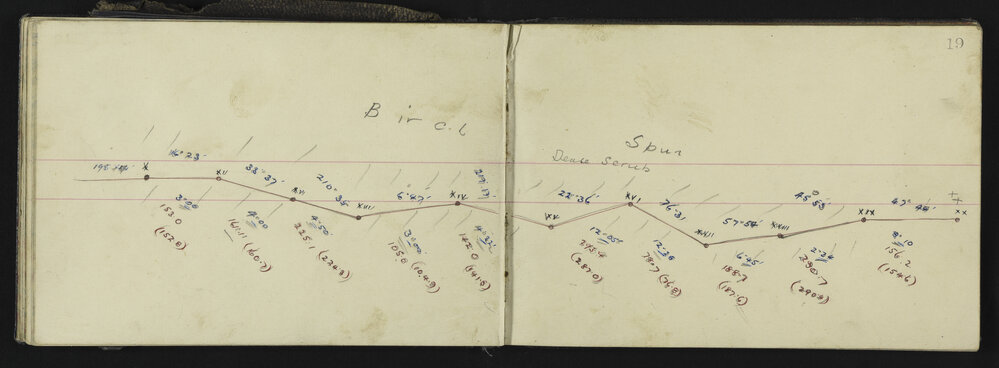 19
B ir c. h
Spur
Dense Scrub
X
16° 23'
XII
33° 37'
XVI
210° 35'
XIII
6° 47'
XIV
XV
22° 36'
XVI
76° 31'
XVII
57° 54'
XVIII
45° 53'
XIX
47° 44'
XX
3° 00
153.0
(152.8)
4° 00
(160.7)
4° 50'
225.1
(224.3)
3° 00'
105.0
(104.9)
4° 33'
142.0
(141.5)
12° 05'
(287.0)
12° 28
78.7
(76.8)
6° 45'
188.7
(187.6)
2° 24
290.7
(290.3)
8° 10
156.2
(154.6)